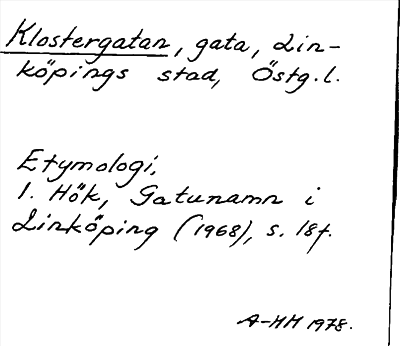 Klostergatan, gata, Lin-
köpings stad, Östg.l.
Etymologi,
I. Hök, Gatunamn i
Linköping (1968), s. 18f.
A-HH 1978.